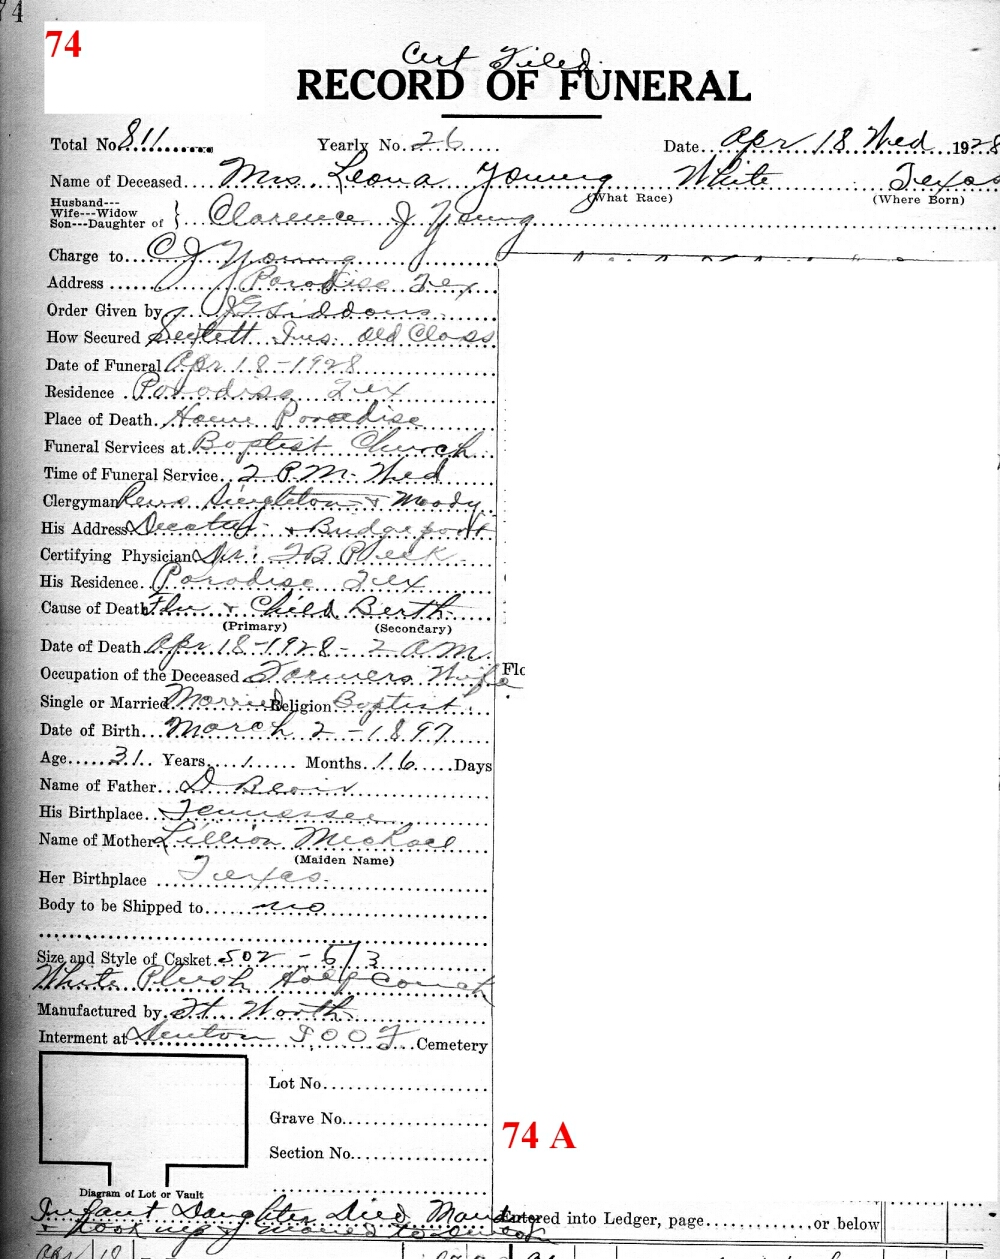 74
74
Cert Filed
RECORD OF FUNERAL
Total No. 811 Yearly No. 26 Date Apr 18 Wed 1928
Name of Deceased Mrs. Leona Young White Texas
(What Race) (Where Born)
Husband---
Wife---Widow
Son---Daughter of } Clarence J Young
Charge to C J Young
Address Paradise Tex
Order Given by J G Siddons
How Secured Ins. old Class
Date of Funeral Apr 18-1928
Residence Paradise Tex
Place of Death Home Paradise
Funeral Services at Baptist Church
Time of Funeral Service 2 P.M. Wed
Clergyman Revs Singleton & Moody
His Address Decatur & Bridgeport
Certifying Physician Dr.
His Residence Paradise Tex
Cause of Death Flu & Child Berth
(Primary) (Secondary)
Date of Death Apr 18-1928- 2 A M.
Flo
Occupation of the Deceased Farmers Wife
Single or Married Married Religion Baptist
Date of Birth March 2-1897
Age 31 Years 1 Months 16 Days
Name of Father D
His Birthplace Tennessee
Name of Mother Lillion
(Maiden Name)
Her Birthplace Texas
Body to be Shipped to no
Size and Style of Casket 502 - 6/3
White Plush Half Couch
Manufactured by Ft. Worth
Interment at Denton I O O F Cemetery
Lot No.
Grave No.
74 A
Section No.
Diagram of Lot or Vault
Infant Daughter Died
Entered into Ledger, page or below
& took up & moved to
Apr 18